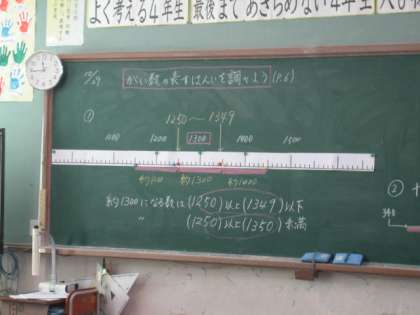 よく考える4年生
最後まであきらめない4年生
がい数の表すはんいを調べよう (P.6)
①
1250〜1349
1100 1200 1300 1400 1500
約1200 約1300 約1400
約1300になる数は(1250)以上(1349)以下
〃 (1250)以上(1350)未満
②
340